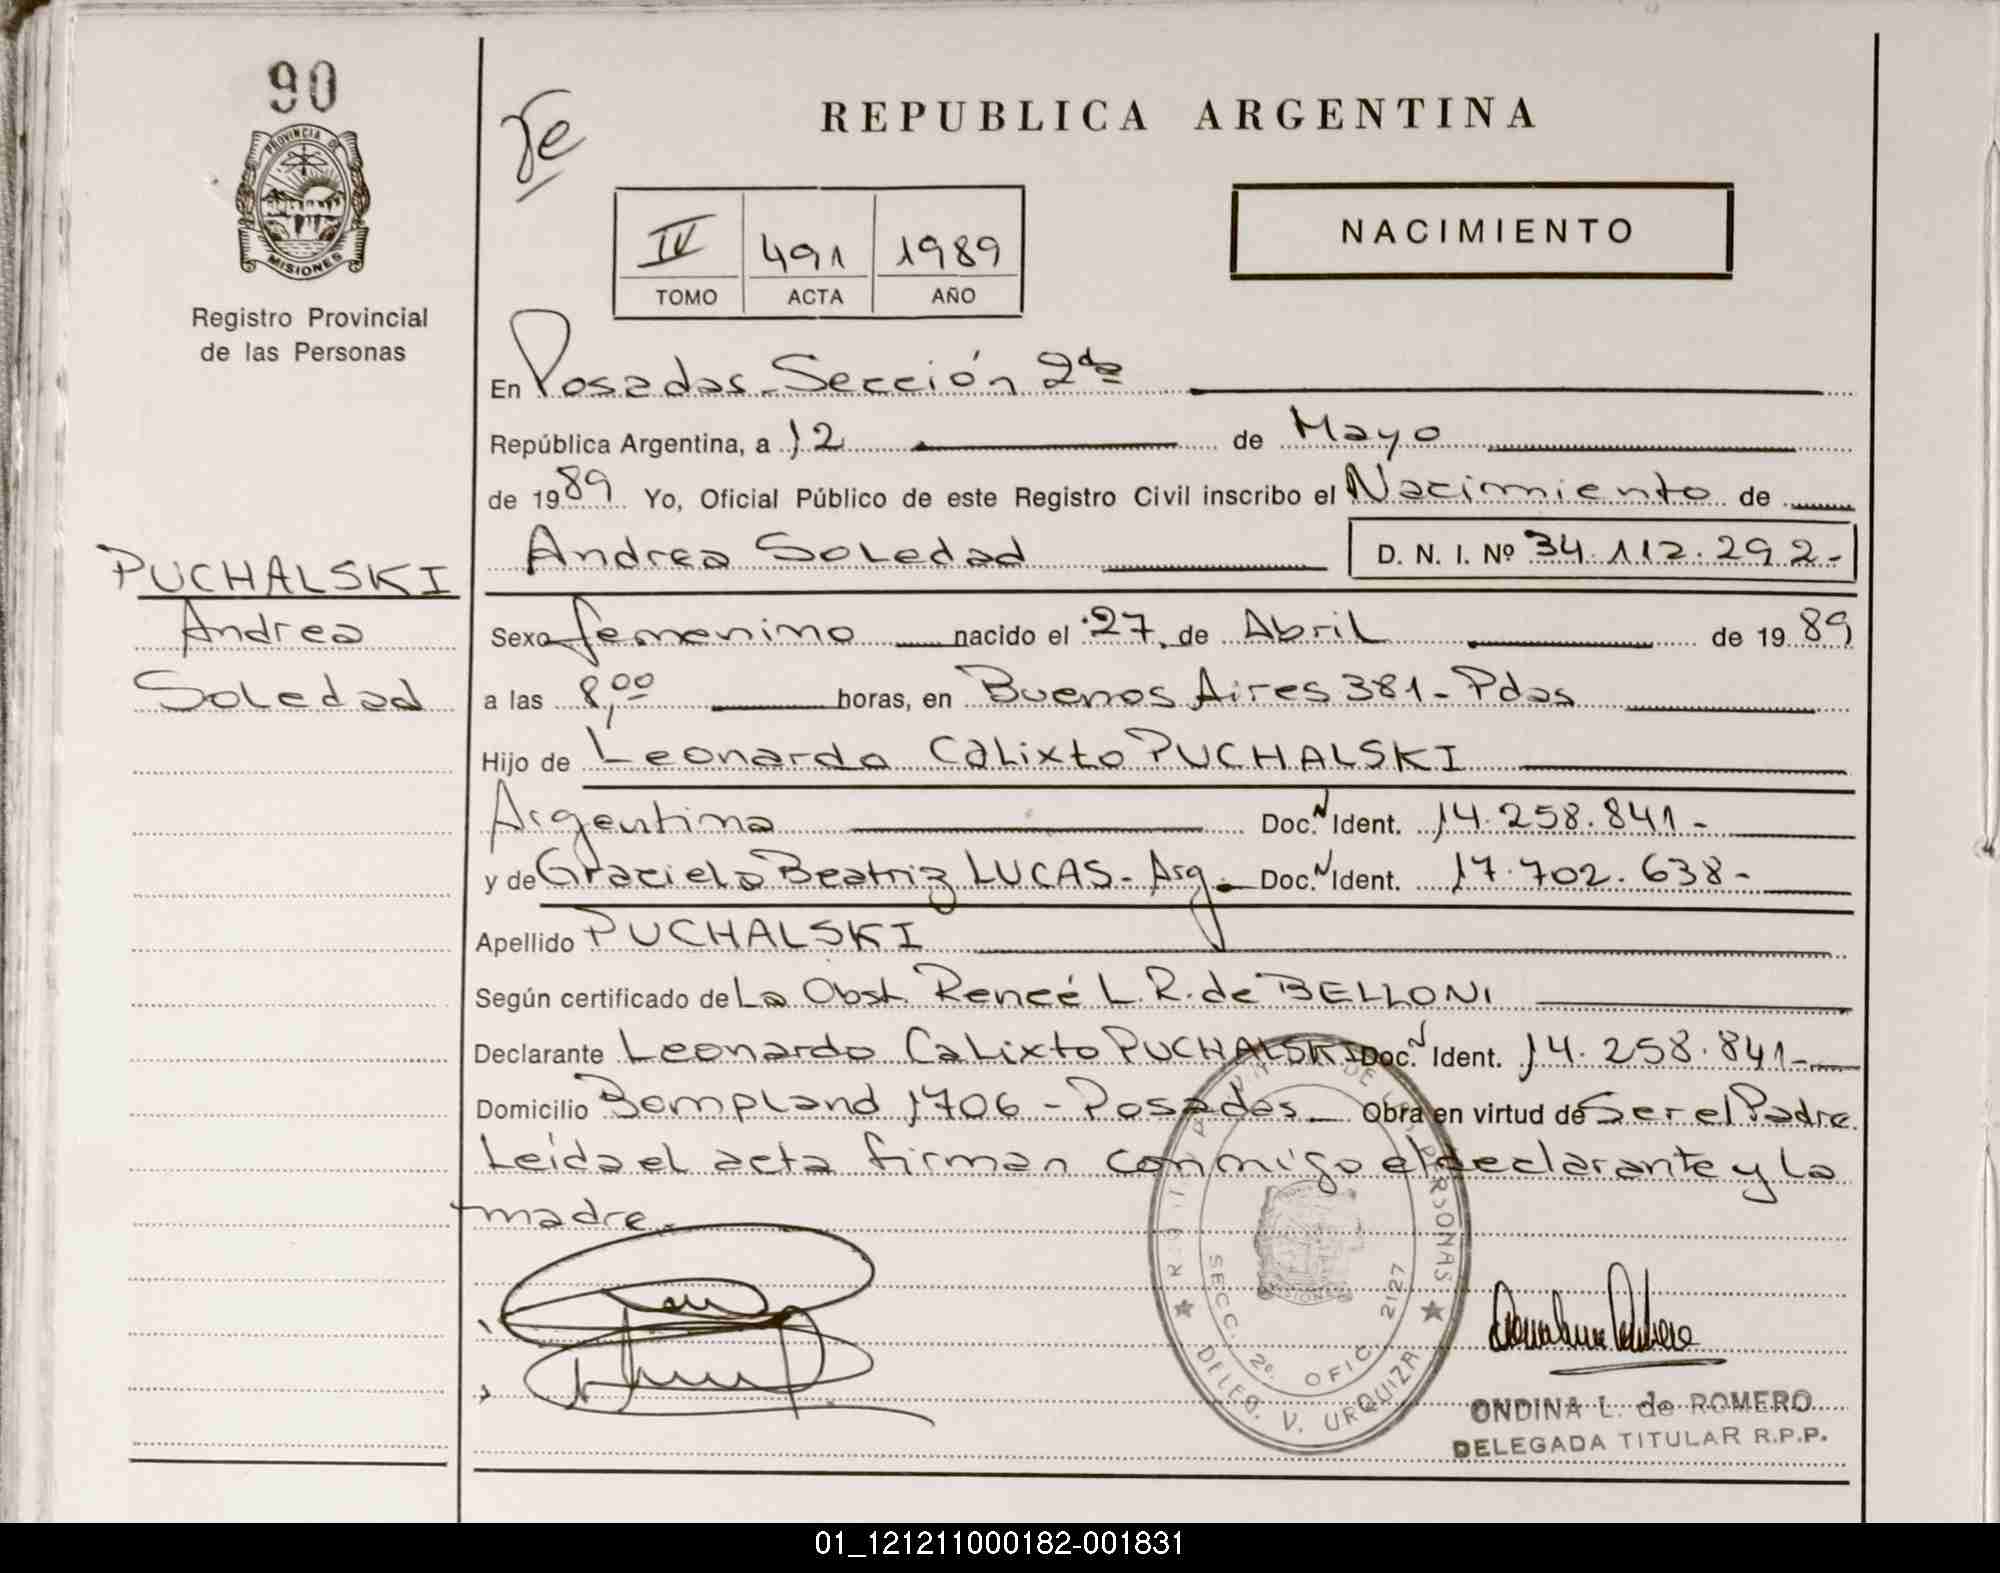 90
PROVINCIA DE
MISIONES
Registro Provincial
de las Personas
REPUBLICA ARGENTINA
NACIMIENTO
IV 491 1989
TOMO ACTA AÑO
En Posadas - Sección 2da
República Argentina, a 12 de Mayo
de 1989 Yo, Oficial Público de este Registro Civil inscribo el Nacimiento de
Andrea Soledad D. N. I. Nº 34.112.292-
PUCHALSKI
Andrea
Soledad
Sexo femenino nacido el 27 de Abril de 1989
a las 8,00 horas, en Buenos Aires 381 - Pdas
Hijo de Leonardo Calixto PUCHALSKI
Argentina Doc. N Ident. 14.258.841-
y de Graciela Beatriz LUCAS - Arg. Doc. N Ident. 17.702.638-
Apellido PUCHALSKI
Según certificado de La Obst. Reneé L. R. de BELLONI
Declarante Leonardo Calixto PUCHALSKI Doc. N Ident. 14.258.841-
Domicilio Bompland 1706 - Posadas Obra en virtud de Ser el Padre
Leída el acta firman conmigo el declarante y la
madre.
DE PERSONAS
SECC. 2º. OFIC. 2127
DELEG. V. URQUIZA
ONDINA L. de ROMERO
DELEGADA TITULAR R.P.P.
01_121211000182-001831